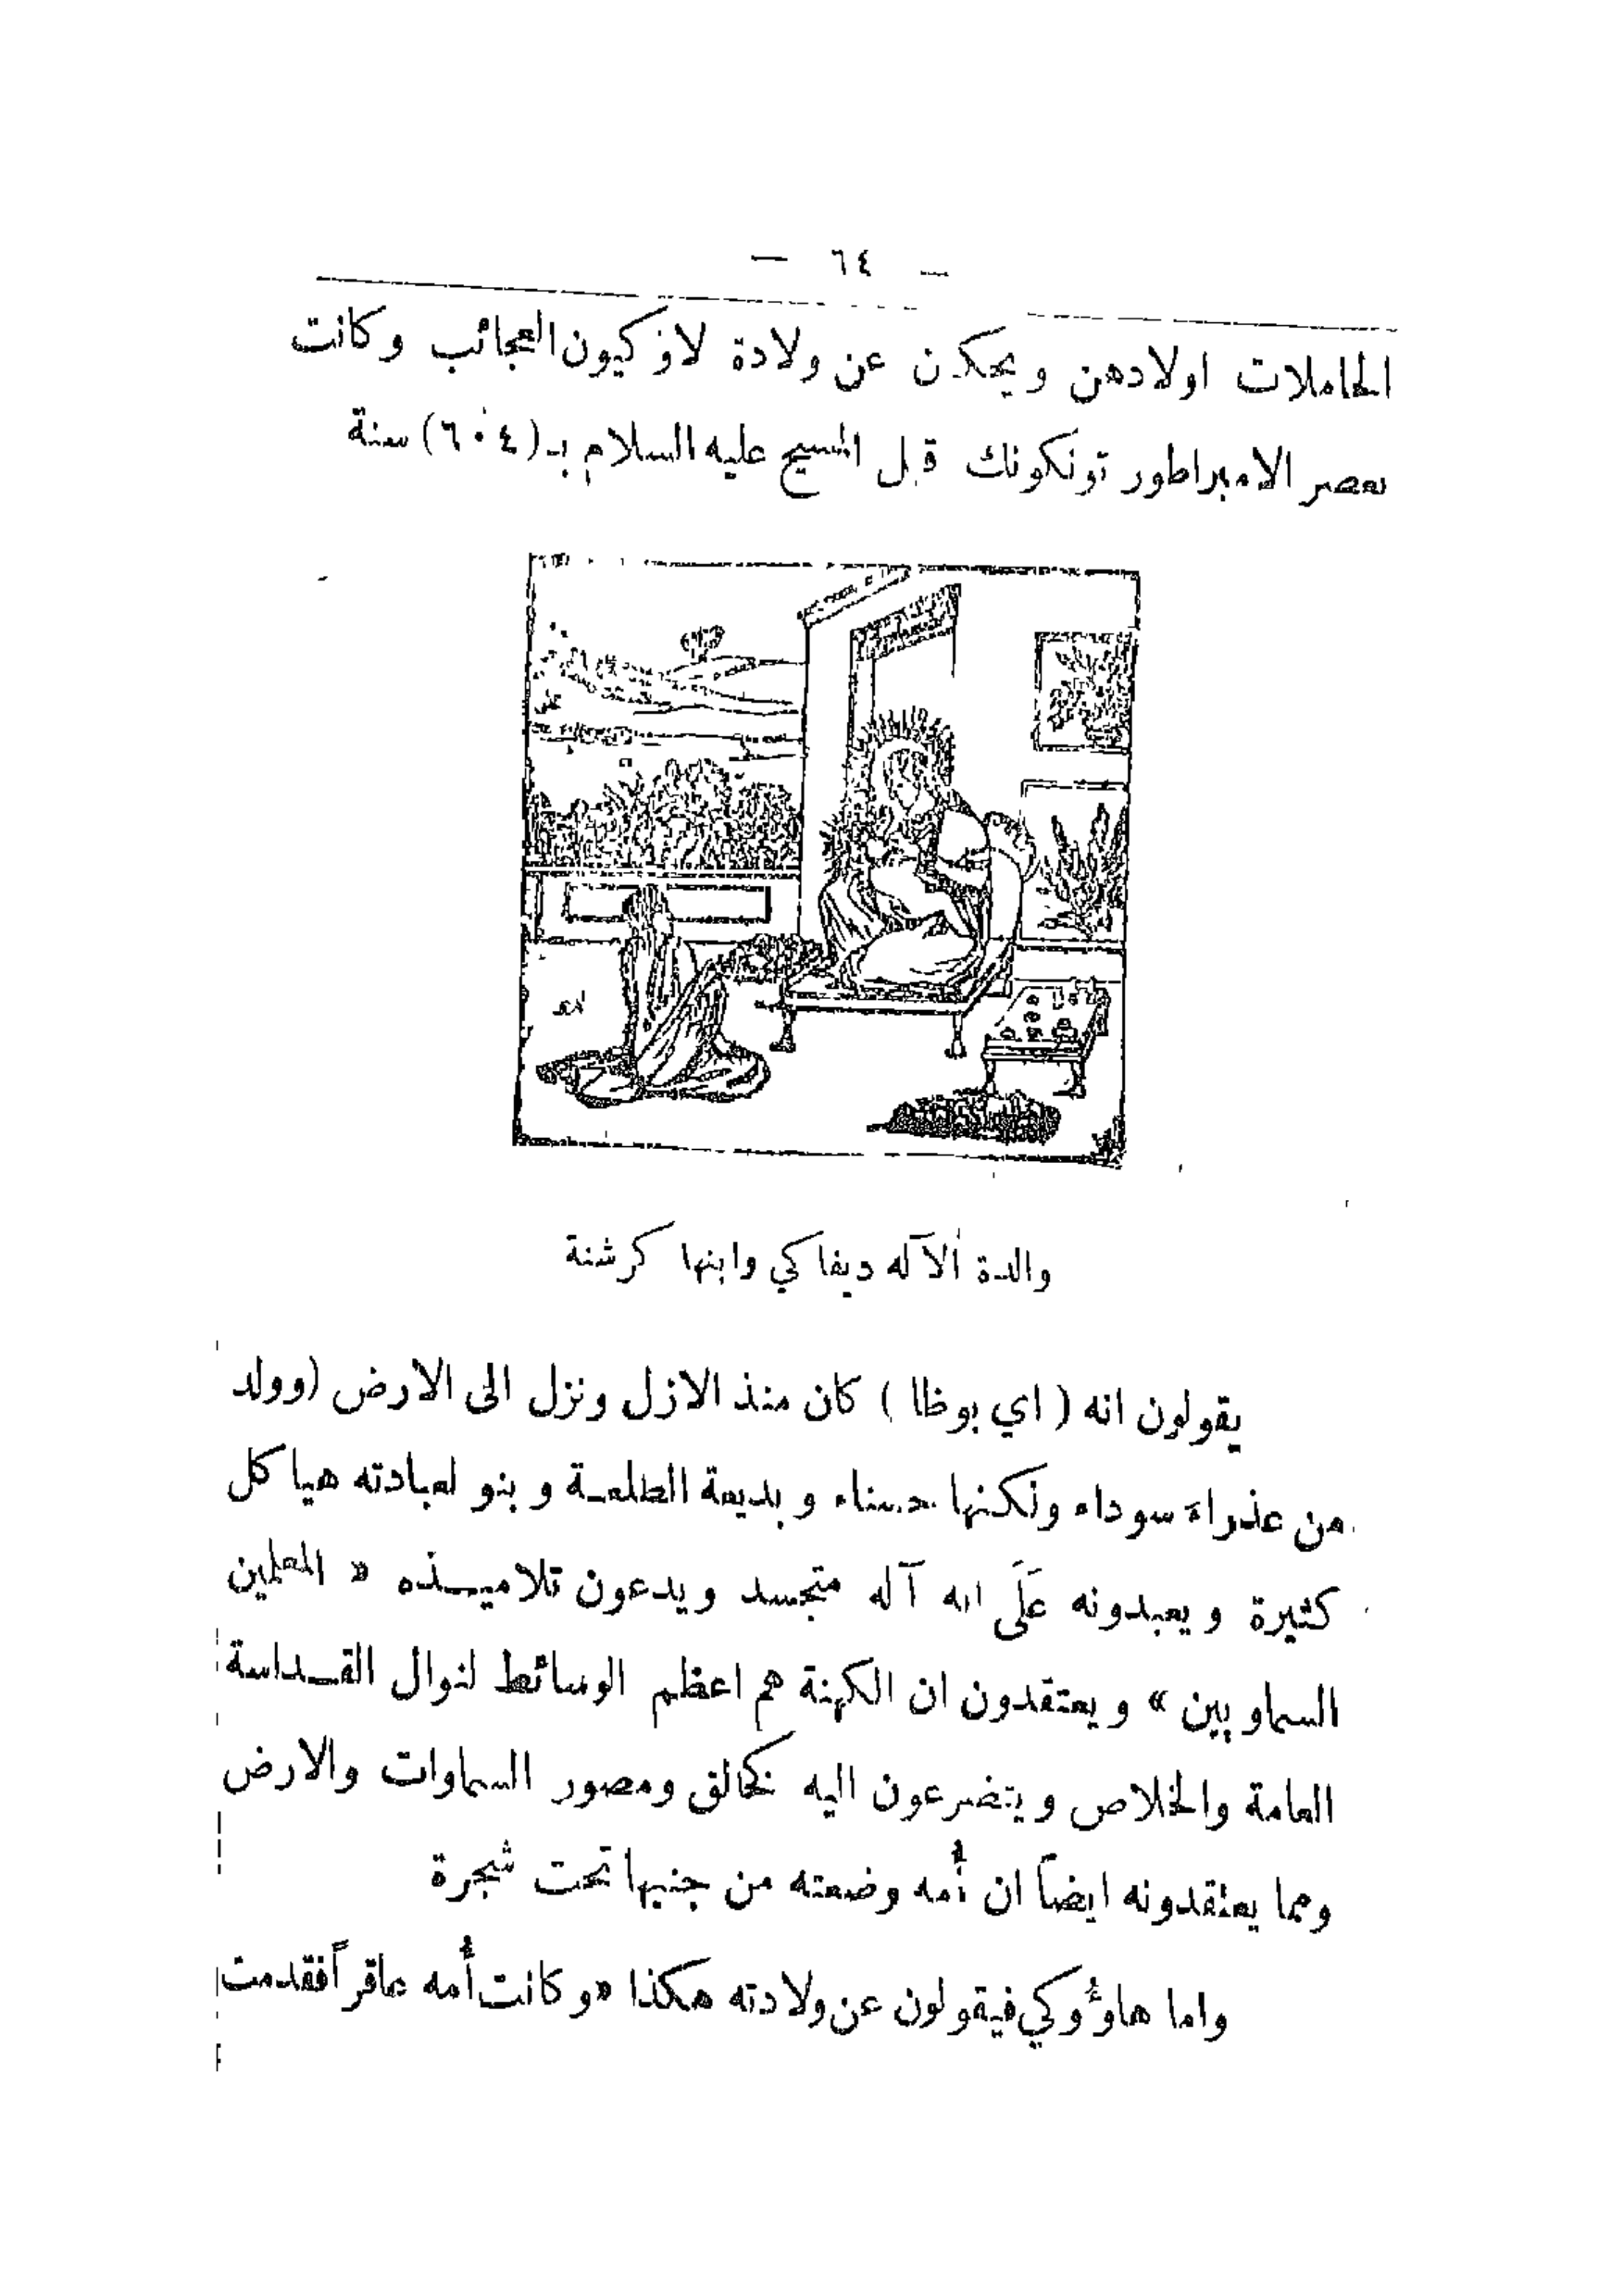 — ٦٤ —
الحاملات اولادهن ويحكن عن ولادة لاو كيون العجائب وكانت
بعصر الامبراطور تونكونك قبل المسيح عليه السلام بـ(٦٠٤) سنة
والدة ألآله ديفاكي وابنها كرشنة
يقولون انه ( اي بوظا ) كان منذ الازل ونزل الى الارض (وولد
من عذراء سوداء ولكنها حسناء وبديعة الطلعة وبنو لعبادته هياكل
كثيرة ويعبدونه عَلَى انه آله متجسد ويدعون تلاميذه « المعلمين
السماويين » ويعتقدون ان الكهنة هم اعظم الوسائط لنوال القداسة
العامة والخلاص ويتضرعون اليه كخالق ومصور السماوات والارض
ومما يعتقدونه ايضاً ان أُمه وضعته من جنبها تحت شجرة
واما هاوُوكي فيقولون عن ولادته هكذا «وكانت أُمه عاقراً فقدمت